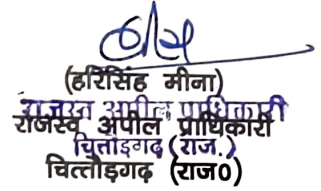 (हरिसिंह मीना)
राजस्व अपील प्राधिकारी
राजस्व अपील प्राधिकारी
चित्तौड़गढ़ (राज.)
चित्तौड़गढ़ (राज0)